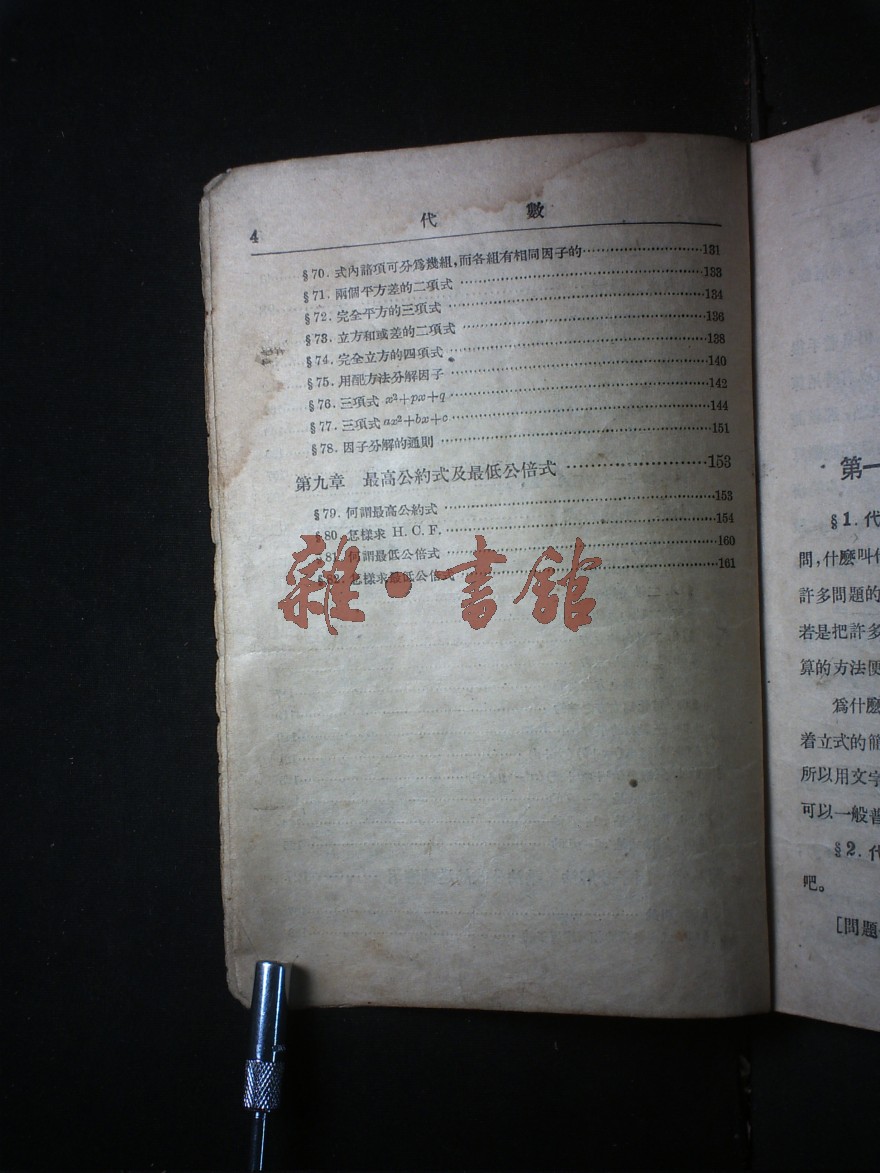 4
代 數
§70. 式內諸項可分爲幾組,而各組有相同因子的……131
§71. 兩個平方差的二項式……133
§72. 完全平方的三項式……134
§73. 立方和或差的二項式……136
§74. 完全立方的四項式……138
§75. 用配方法分解因子……140
§76. 三項式 x²+px+q……142
§77. 三項式 ax²+bx+c……144
§78. 因子分解的通則……151
第九章 最高公約式及最低公倍式……153
§79. 何謂最高公約式……153
§80. 怎樣求 H. C. F.……154
§81. 何謂最低公倍式……160
§82. 怎樣求最低公倍式……161
雜·書館
第一
§1. 代
問,什麼叫代
許多問題的
若是把許多
算的方法便
爲什麼
着立式的簡
所以用文字
可以一般普
§2. 代
吧。
[問題